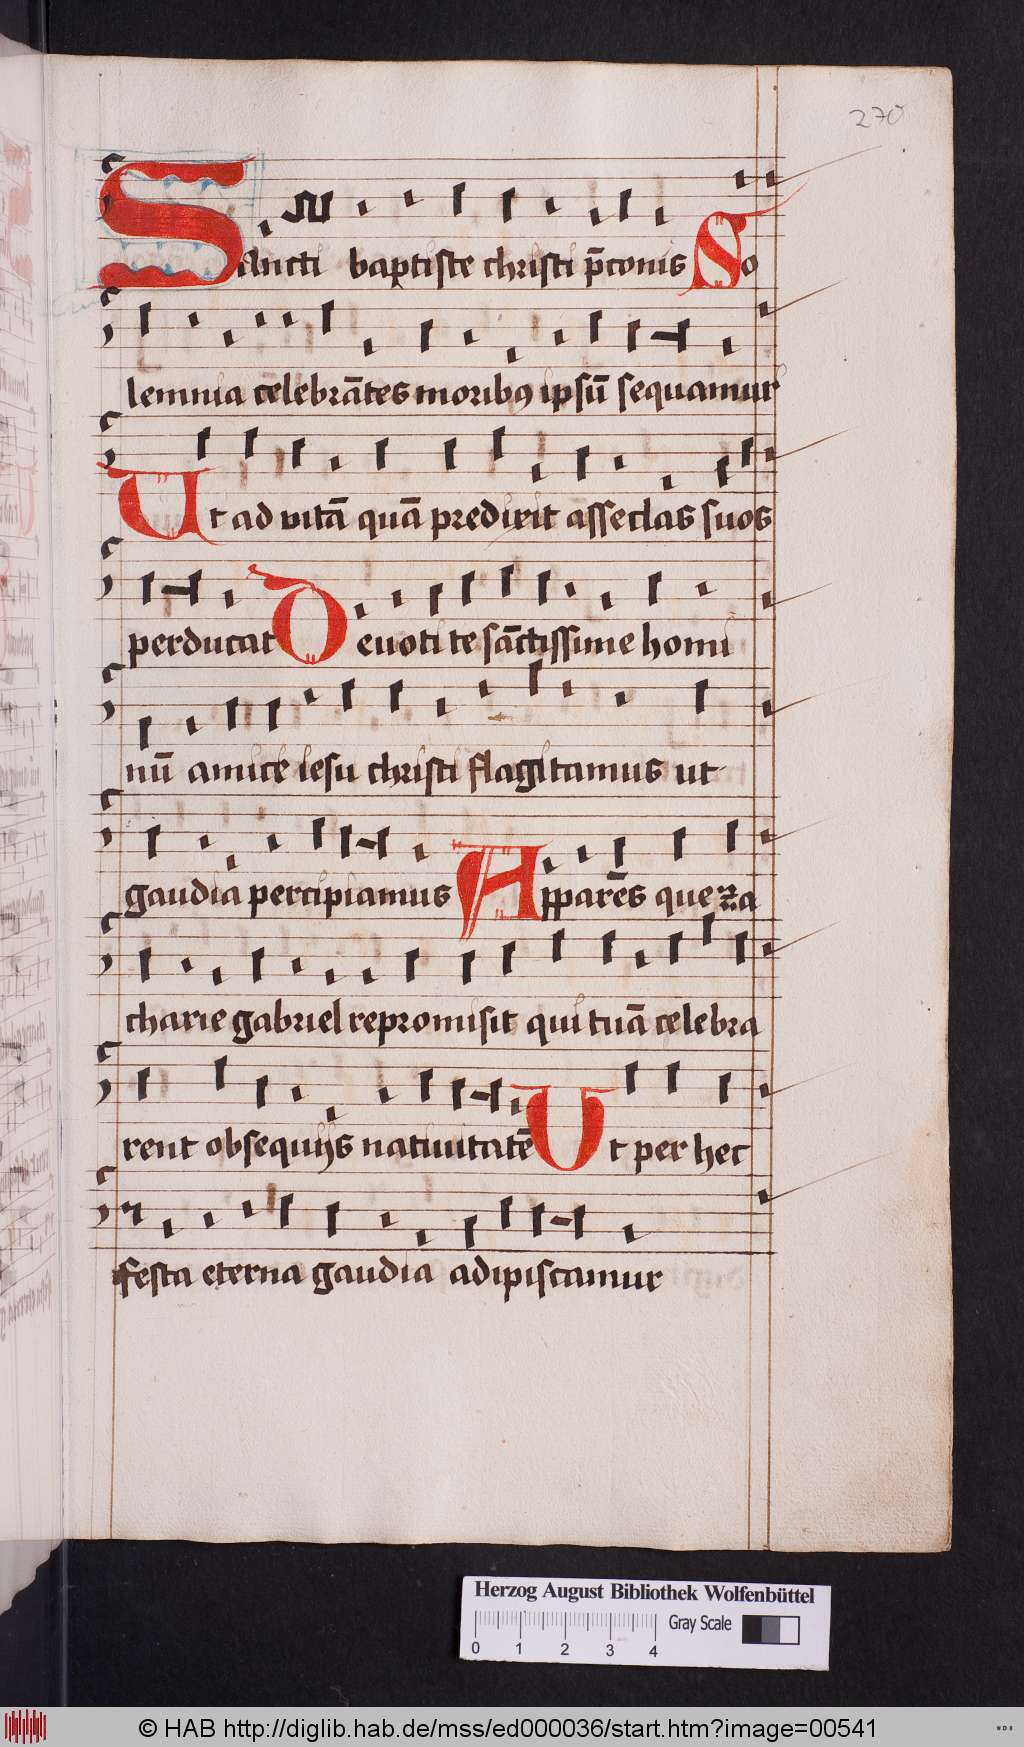 270
Sancti baptiste christi p̄conis So
lemnia celebrātes moribꝯ ipsū sequamur
Ut ad vitā quā predixit asseclas suos
perducat Deuoti te sāctissime homi
nū amice iesu christi flagitamus ut
gaudia percipiamus Apparēs que za
charie gabriel repromisit qui tuā celebra
rent obsequijs natiuitatē Ut per hec
festa eterna gaudia adipiscamur
Herzog August Bibliothek Wolfenbüttel
Gray Scale
0 1 2 3 4
© HAB http://diglib.hab.de/mss/ed000036/start.htm?image=00541
WDB